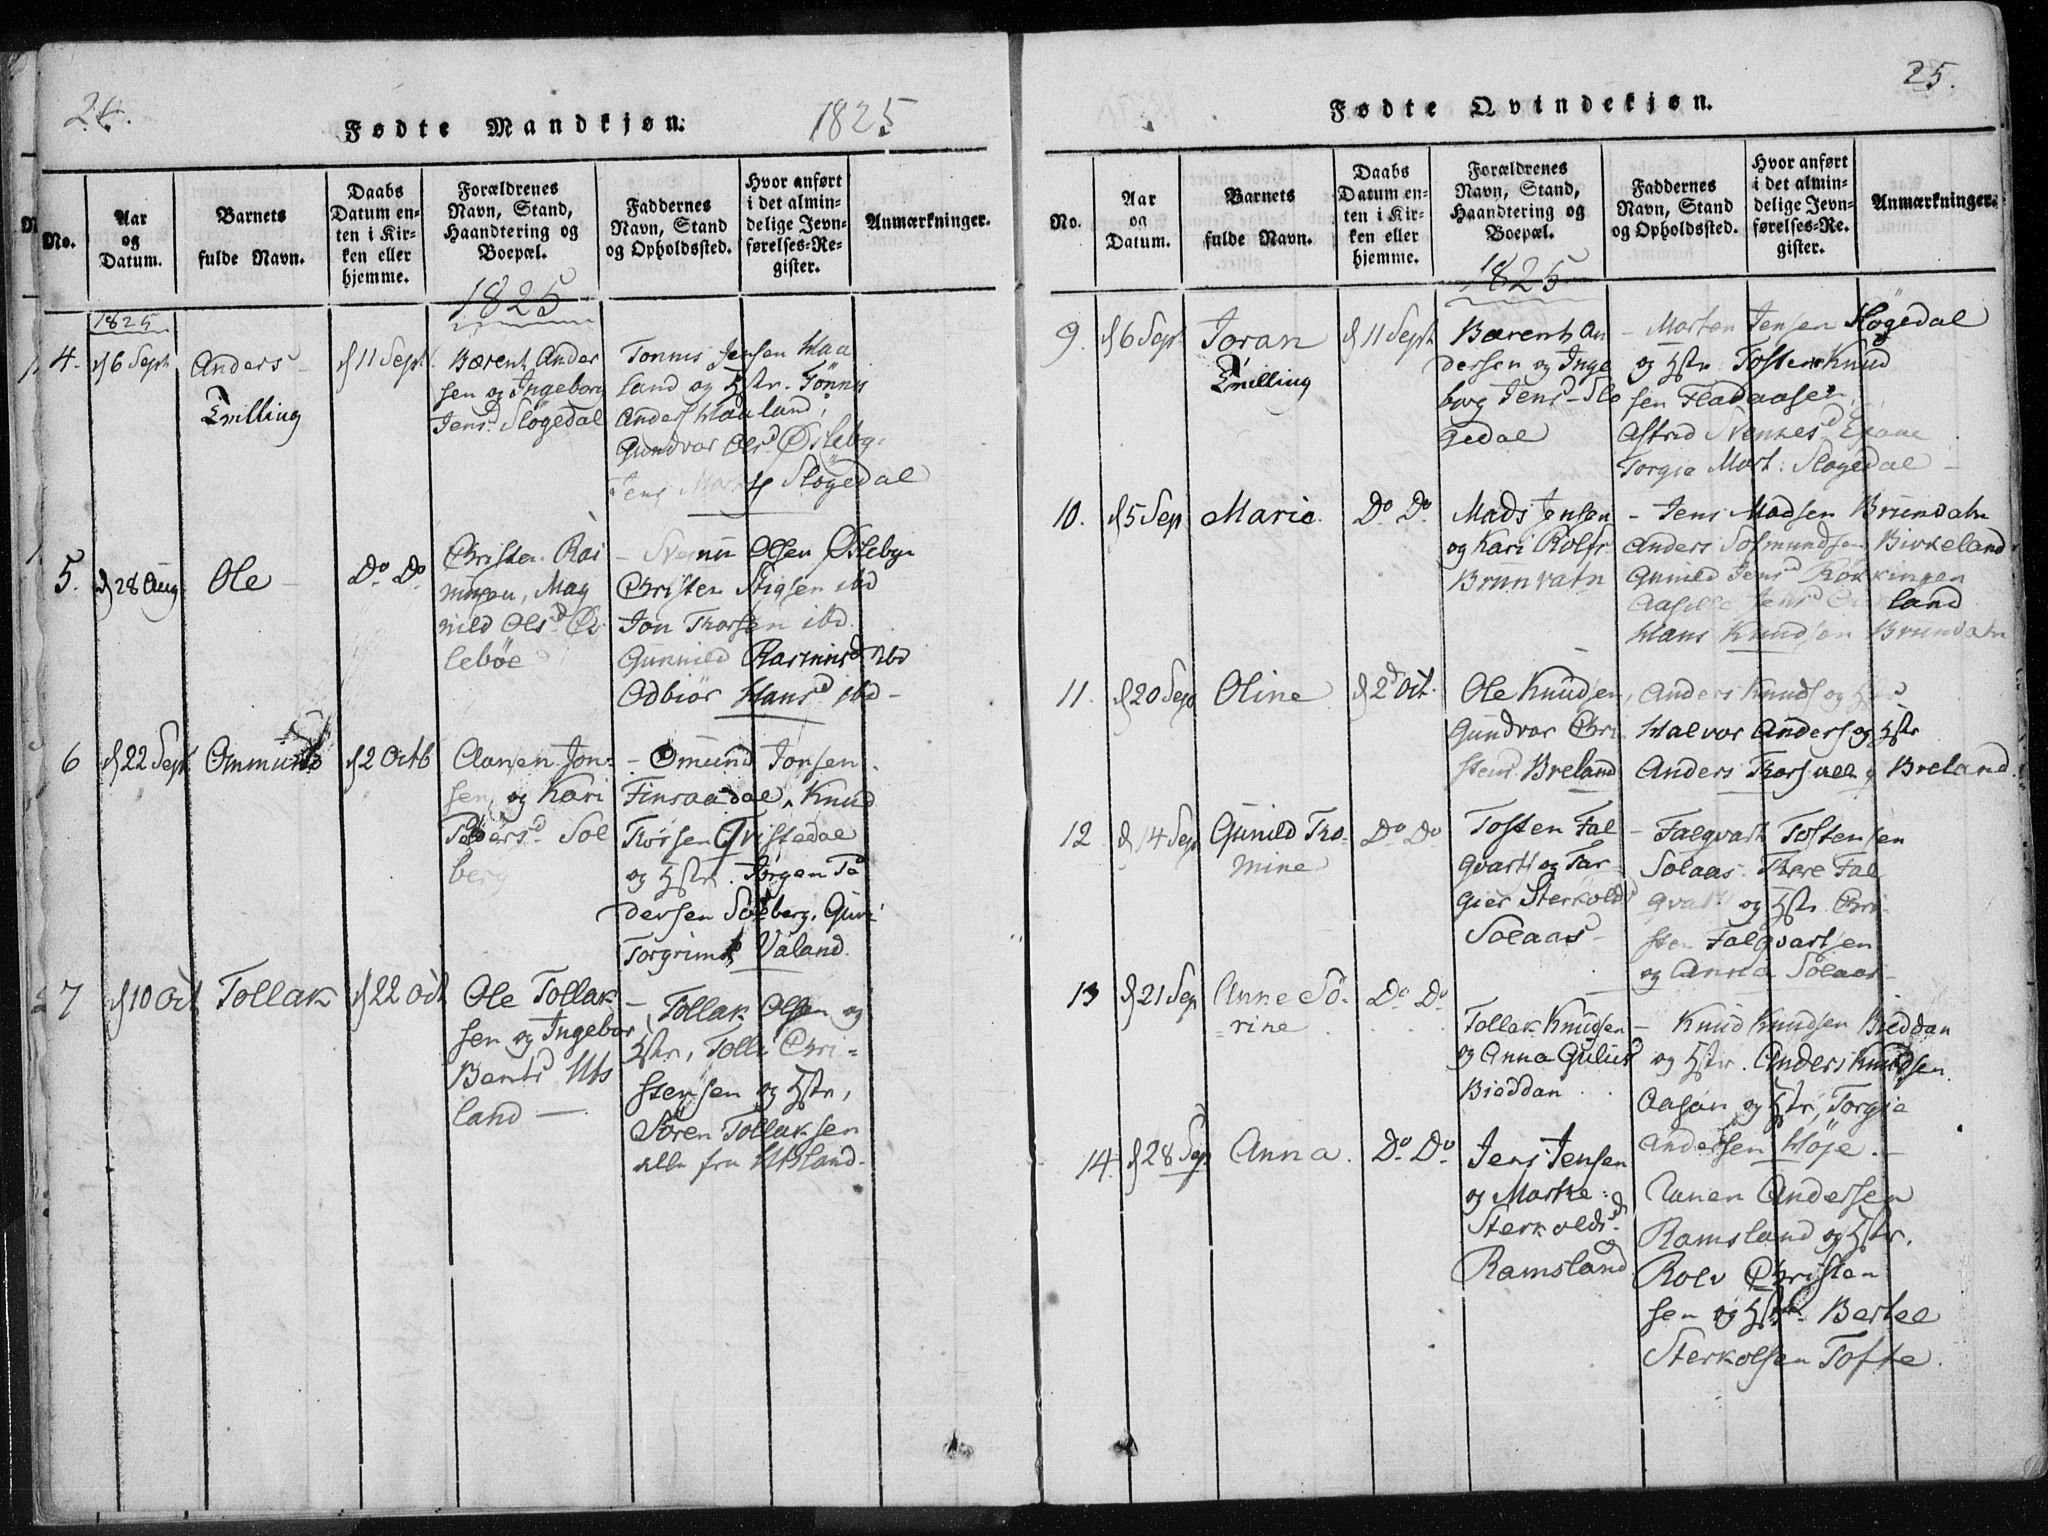 24.
Fødte Mandkjøn.
1825
No.
Aar
og
Datum.
Barnets
fulde Navn.
Daabs
Datum en-
ten i Kir-
ken eller
hjemme.
Forældrenes
Navn, Stand,
Haandtering og
Boepæl.
Faddernes
Navn, Stand
og Opholdssted.
Hvor anført
i det almin-
delige Jevn-
førelses-Re-
gister.
Anmærkninger.
1825
1825
4.
d 6 Sept
Anders
Tvilling
d 11 Sept
Bærent Ander
sen og Ingeborg
Jensd Slögedal
Tönnis Jensen Haa
land og Hstr. Tönnis
Anders Haaland,
Gundvor Olsd Øslebg.
Jens Slögedal
5.
d 28 Aug
Ole
Do Do
Christen Ras
musen, Mag
nild Olsd Øs
lebøe
- Olsen Øslebye
Christen Stigsen ibd
Jon Thorsen ibd.
Gunnild Rasmusd ibd
Odbiör Hansd ibd -
6
d 22 Sept
Ommund
d 2 Octb
Aanen Jon-
sen, og Kari
Pedersd Sol
berg
- Omund Jonsen
Finsaadal, Knud
Thorsen Qvistedal
og Hstr. Jörgen Pe
dersen Solberg, Guri
Torgrimsd Valand.
7
d 10 Oct
Tollak
d 22 Oct
Ole Tollak
sen og Ingebor
Bentsd Ubs
land -
- Tollak Olsen og
Hstr, Tolle Chri-
stensen og Hstr,
Sören Tollaksen
alle fra Ubsland.
25.
Fødte Qvindekjøn.
No.
Aar
og
Datum.
Barnets
fulde Navn.
Daabs
Datum en-
ten i Kir-
ken eller
hjemme.
Forældrenes
Navn, Stand,
Haandtering og
Boepæl.
Faddernes
Navn, Stand
og Opholdssted.
Hvor anført
i det almin-
delige Jevn-
førelses-Re-
gister.
Anmærkninger.
1825
9.
d 6 Sept
Joran
Tvilling
d 11 Sept
Bærent An
dersen og Inge
borg Jensd Slö
gedal
- Morten Jensen Slögedal
og Hstr. Tosten Knud
sen Fladaasen,
Astrid
Torgie Mort: Slögedal -
10.
d 5 Sep
Marie.
Do Do
Mads Jensen
og Kari Rolfs
Brunvatn
- Jens Madsen Brunvatn
Anders Sosmundsen Birkeland
Gunild Jensd Röskingen
Aasille Jensd land
Hans Knudsen Brunvatn
11.
d 20 Sep
Oline
d 2d Oct.
Ole Knudsen,
Gundvor Chri
stensd Breland
Anders Knuds og Hstr
Halvor Anders og Hstr
Anders Thors alle Breland.
12
d 14 Sep
Gunild Tho-
mine
Do Do
Tosten Fal
qvarts og Tar-
gier Sterkolds
Solaas
- Falqvart Tostensen
Solaas. Thore Fal
qvarts og Hstr. Chri-
sten Falqvartsen
og Anna Solaas -
13
d 21 Sep
Anne Sö-
rine
Do Do
Tollak Knudsen
og Anna Guliksd
Bieddan
- Knud Knudsen Bieddan
og Hstr. Anders Knudsen
Aasan og Hstr, Torgie
Andersen Höje. -
14.
d 28 Sep
Anna.
Do Do
Jens Jensen
og Marthe
Sterkoldsd
Ramsland
Aanen Andersen
Ramsland og Hstr.
Rolv Christen
sen og Hstr. Bertel
Sterkolsen Tofte.